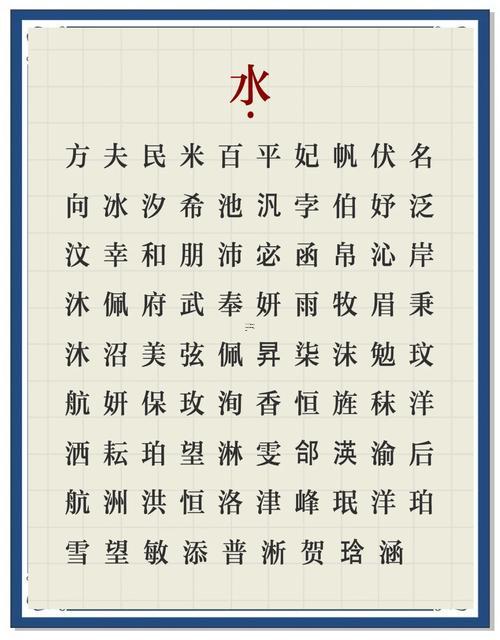 水
方夫民米百平妃帆伏名
向冰汐希池汎孛伯妤泛
汶幸和朋沛宓函帛沁岸
沐佩府武奉妍雨牧眉秉
沐沼美弦佩昇柒沫勉玟
航妍保玫洵香恒旌秣洋
洒耘珀望淋雯郃渶渝后
航洲洪恒洛津峰珉洋珀
雪望敏添普淅贺琀涵